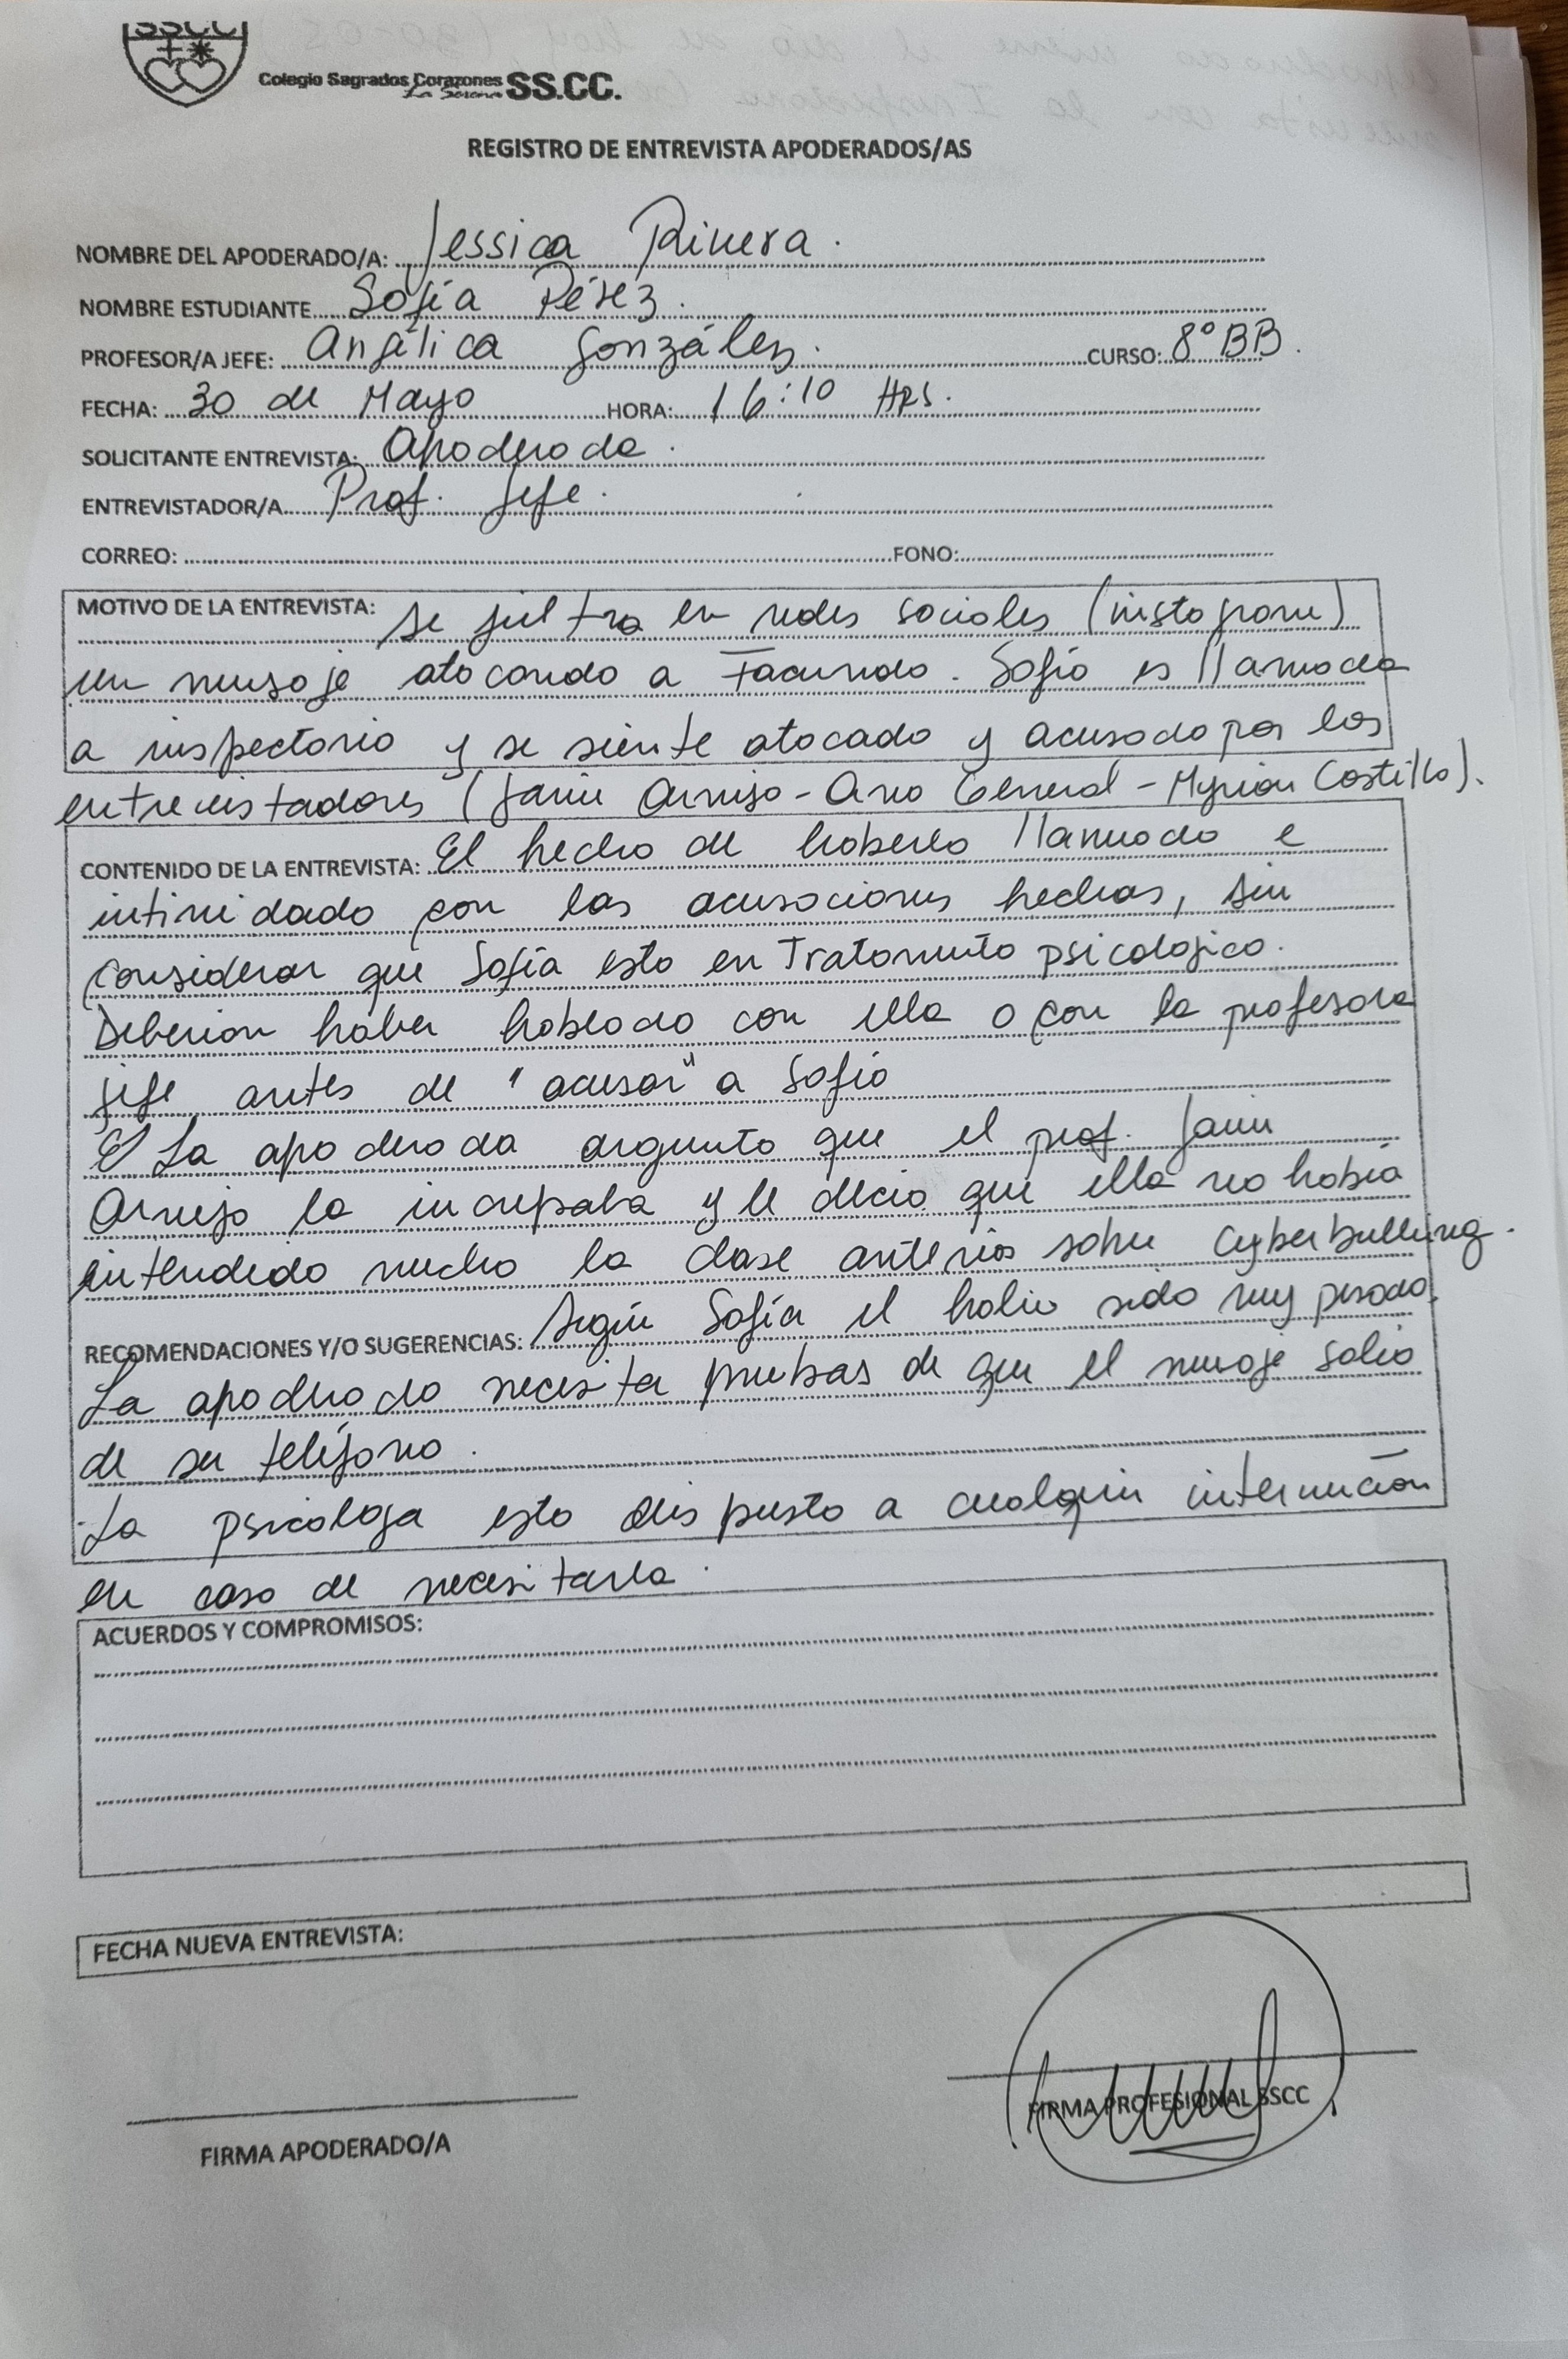 SSCC
Colegio Sagrados Corazones SS.CC.
La Serena
REGISTRO DE ENTREVISTA APODERADOS/AS
NOMBRE DEL APODERADO/A: Jessica Rivera.
NOMBRE ESTUDIANTE Sofía Pérez.
PROFESOR/A JEFE: Angélica González. CURSO: 8° BB.
FECHA: 30 de Mayo HORA: 16:10 HRS.
SOLICITANTE ENTREVISTA: Apoderada.
ENTREVISTADOR/A Prof. Jefe.
CORREO: FONO:
MOTIVO DE LA ENTREVISTA: se filtra en redes sociales (instagram)
un mensaje atacando a Facundo. Sofía es llamada
a inspectoria y se siente atacada y acusada por los
entrevistadores (Jaime Armijo - Ana General - Myriam Castillo).
CONTENIDO DE LA ENTREVISTA: El hecho de haberla llamado e
intimidado con las acusaciones hechas, sin
considerar que Sofía esta en Tratamiento psicologico.
Deberian haber hablado con ella o con la profesora
jefe antes de "acusar" a Sofía
La apoderada argumenta que el prof. Jaime
Armijo la increpaba y le decia que ella no había
entendido mucho la clase anterior sobre Cyberbulling.
Según Sofía el habia sido muy pesado.
RECOMENDACIONES Y/O SUGERENCIAS:
La apoderada necesita pruebas de que el mensaje salio
de su teléfono.
La psicóloga esta dispuesta a cualquier intervención
en caso de necesitarla.
ACUERDOS Y COMPROMISOS:
FECHA NUEVA ENTREVISTA:
FIRMA APODERADO/A
FIRMA PROFESIONAL SSCC